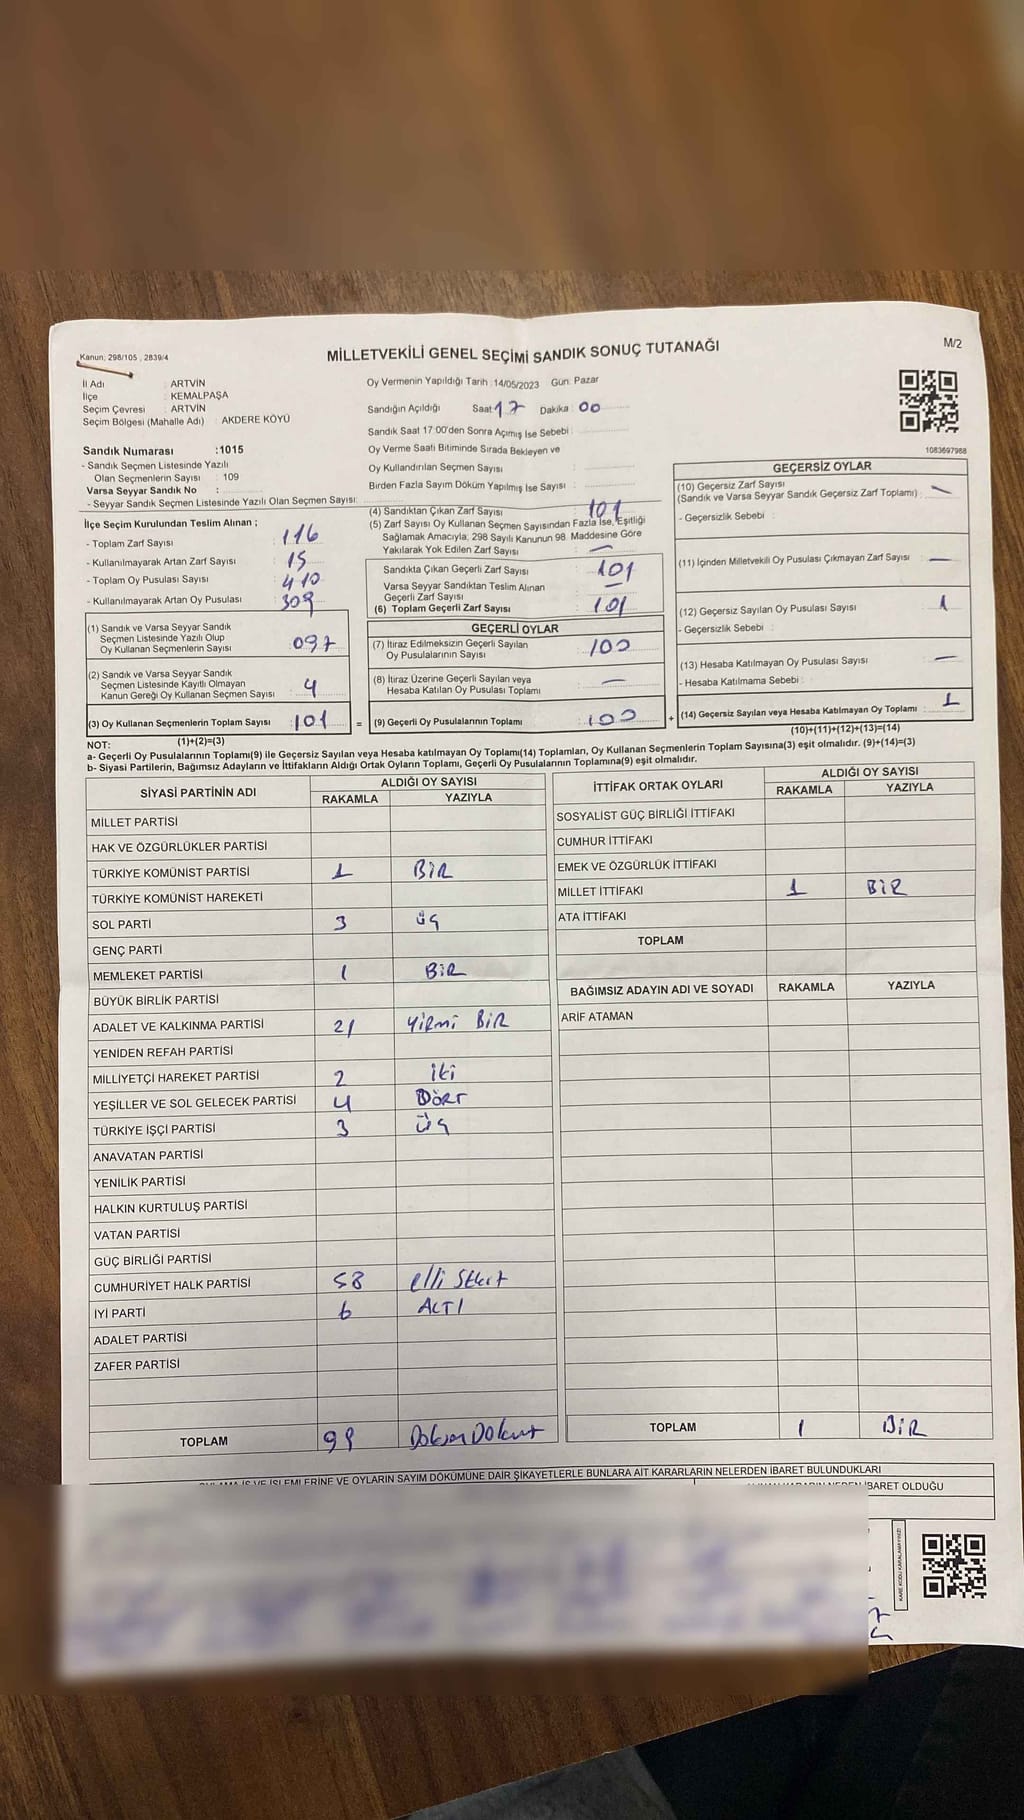 Kanun: 298/105 , 2839/4
MİLLETVEKİLİ GENEL SEÇİMİ SANDIK SONUÇ TUTANAĞI
M/2
İl Adı : ARTVİN
İlçe : KEMALPAŞA
Seçim Çevresi : ARTVİN
Seçim Bölgesi (Mahalle Adı) : AKDERE KÖYÜ
Oy Vermenin Yapıldığı Tarih : 14/05/2023 Gün: Pazar
Sandığın Açıldığı Saat 17 Dakika : 00
Sandık Saat 17:00'den Sonra Açımış İse Sebebi :
Oy Verme Saati Bitiminde Sırada Bekleyen ve
Oy Kullandırılan Seçmen Sayısı :
Birden Fazla Sayım Döküm Yapılmış İse Sayısı :
1083697988
Sandık Numarası :1015
- Sandık Seçmen Listesinde Yazılı
Olan Seçmenlerin Sayısı : 109
Varsa Seyyar Sandık No :
- Seyyar Sandık Seçmen Listesinde Yazılı Olan Seçmen Sayısı:
İlçe Seçim Kurulundan Teslim Alınan ;
- Toplam Zarf Sayısı : 116
- Kullanılmayarak Artan Zarf Sayısı : 15
- Toplam Oy Pusulası Sayısı : 410
- Kullanılmayarak Artan Oy Pusulası : 309
(1) Sandık ve Varsa Seyyar Sandık
Seçmen Listesinde Yazılı Olup
Oy Kullanan Seçmenlerin Sayısı : 097
(2) Sandık ve Varsa Seyyar Sandık
Seçmen Listesinde Kayıtlı Olmayan
Kanun Gereği Oy Kullanan Seçmen Sayısı : 4
(3) Oy Kullanan Seçmenlerin Toplam Sayısı : 101
(1)+(2)=(3)
(4) Sandıktan Çıkan Zarf Sayısı : 101
(5) Zarf Sayısı Oy Kullanan Seçmen Sayısından Fazla İse, Eşitliği
Sağlamak Amacıyla; 298 Sayılı Kanunun 98. Maddesine Göre
Yakılarak Yok Edilen Zarf Sayısı : —
Sandıkta Çıkan Geçerli Zarf Sayısı : 101
Varsa Seyyar Sandıktan Teslim Alınan
Geçerli Zarf Sayısı : —
(6) Toplam Geçerli Zarf Sayısı : 101
GEÇERLİ OYLAR
(7) İtiraz Edilmeksizin Geçerli Sayılan
Oy Pusulalarının Sayısı : 100
(8) İtiraz Üzerine Geçerli Sayılan veya
Hesaba Katılan Oy Pusulası Toplamı : —
= (9) Geçerli Oy Pusulalarının Toplamı : 100 +
GEÇERSİZ OYLAR
(10) Geçersiz Zarf Sayısı : —
(Sandık ve Varsa Seyyar Sandık Geçersiz Zarf Toplamı)
- Geçersizlik Sebebi :
(11) İçinden Milletvekili Oy Pusulası Çıkmayan Zarf Sayısı : —
(12) Geçersiz Sayılan Oy Pusulası Sayısı : 1
- Geçersizlik Sebebi :
(13) Hesaba Katılmayan Oy Pusulası Sayısı : —
- Hesaba Katılmama Sebebi :
(14) Geçersiz Sayılan veya Hesaba Katılmayan Oy Toplamı : 1
(10)+(11)+(12)+(13)=(14)
NOT:
a- Geçerli Oy Pusulalarının Toplamı(9) ile Geçersiz Sayılan veya Hesaba katılmayan Oy Toplamı(14) Toplamları, Oy Kullanan Seçmenlerin Toplam Sayısına(3) eşit olmalıdır. (9)+(14)=(3)
b- Siyasi Partilerin, Bağımsız Adayların ve İttifakların Aldığı Ortak Oyların Toplamı, Geçerli Oy Pusulalarının Toplamına(9) eşit olmalıdır.
SİYASİ PARTİNİN ADI ALDIĞI OY SAYISI
RAKAMLA YAZIYLA
MİLLET PARTİSİ
HAK VE ÖZGÜRLÜKLER PARTİSİ
TÜRKİYE KOMÜNİST PARTİSİ 1 BİR
TÜRKİYE KOMÜNİST HAREKETİ
SOL PARTİ 3 üç
GENÇ PARTİ
MEMLEKET PARTİSİ 1 BİR
BÜYÜK BİRLİK PARTİSİ
ADALET VE KALKINMA PARTİSİ 21 Yirmi BİR
YENİDEN REFAH PARTİSİ
MİLLİYETÇİ HAREKET PARTİSİ 2 iki
YEŞİLLER VE SOL GELECEK PARTİSİ 4 Dört
TÜRKİYE İŞÇİ PARTİSİ 3 üç
ANAVATAN PARTİSİ
YENİLİK PARTİSİ
HALKIN KURTULUŞ PARTİSİ
VATAN PARTİSİ
GÜÇ BİRLİĞİ PARTİSİ
CUMHURİYET HALK PARTİSİ 58 elli
İYİ PARTİ 6 ALTI
ADALET PARTİSİ
ZAFER PARTİSİ
TOPLAM 99
İTTİFAK ORTAK OYLARI ALDIĞI OY SAYISI
RAKAMLA YAZIYLA
SOSYALİST GÜÇ BİRLİĞİ İTTİFAKI
CUMHUR İTTİFAKI
EMEK VE ÖZGÜRLÜK İTTİFAKI
MİLLET İTTİFAKI 1 BİR
ATA İTTİFAKI
TOPLAM
BAĞIMSIZ ADAYIN ADI VE SOYADI RAKAMLA YAZIYLA
ARİF ATAMAN
TOPLAM 1 BİR
İŞ VE İŞLEMLERİNE VE OYLARIN SAYIM DÖKÜMÜNE DAİR ŞİKAYETLERLE BUNLARA AİT KARARLARIN NELERDEN İBARET BULUNDUKLARI
İBARET OLDUĞU